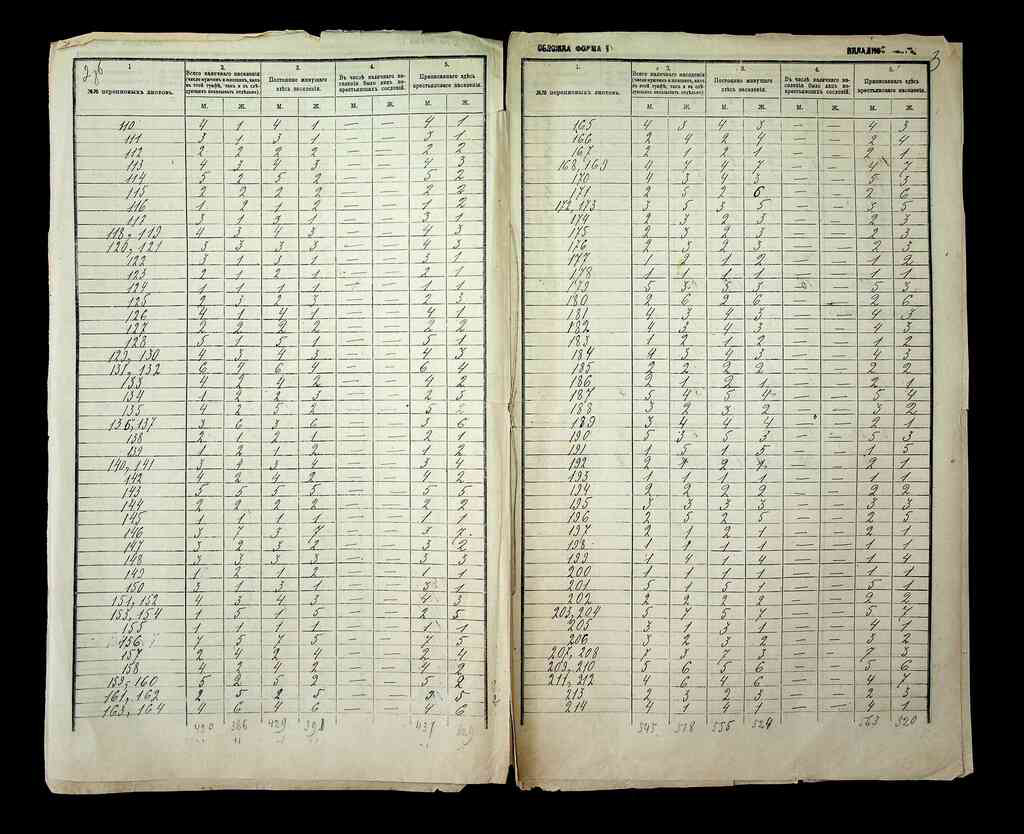 276
1. 2. 3. 4. 5.
№№ переписныхъ листовъ.
Всего наличнаго населенія
Постоянно живущаго здѣсь населенія.
Въ числѣ наличнаго населенія было лицъ некрестьянскихъ сословій.
Приписаннаго здѣсь крестьянскаго населенія.
М. Ж. М. Ж. М. Ж. М. Ж.
110 4 1 4 1 — — 4 1
111 3 1 3 1 — — 3 1
112 2 2 2 2 — — 2 2
113 4 3 4 3 — — 4 3
114 5 2 5 2 — — 5 2
115 2 2 2 2 — — 2 2
116 1 2 1 2 — — 1 2
117 3 1 3 1 — — 3 1
118, 119 4 3 4 3 — — 4 3
120, 121 3 3 3 3 — — 4 3
122 3 1 3 1 — — 3 1
123 2 1 2 1 — — 2 1
124 1 1 1 1 — — 1 1
125 2 3 2 3 — — 2 3
126 4 1 4 1 — — 4 1
127 2 2 2 2 — — 2 2
128 5 1 5 1 — — 5 1
129, 130 4 3 4 3 — — 4 3
131, 132 6 4 6 4 — — 6 4
133 4 2 4 2 — — 4 2
134 1 2 2 — — 2 5
135 4 2 5 2 — — 5 2
136, 137 3 6 3 6 — — 3 6
138 2 1 2 1 — — 2 1
139 1 2 1 2 — — 1 2
140, 141 3 4 3 4 — — 3 4
142 4 2 4 2 — — 4 2
143 5 5 5 5 — — 5 5
144 2 2 2 2 — — 2 2
145 1 1 1 1 — — 1 1
146 3 7 3 7 — — 3 7
147 3 2 3 2 — — 3 2
148 3 3 3 3 — — 3 3
149 1 2 1 2 — — 1 1
150 3 1 3 1 — — 3 1
151, 152 4 3 4 3 — — 4 3
153, 154 1 5 1 5 — — 2 5
155 1 1 1 1 — — 1 1
156 7 5 7 5 — — 7 5
157 2 4 2 4 — — 2 4
158 4 2 4 2 — — 4 2
159, 160 5 2 5 2 — — 5 2
161, 162 2 5 2 5 — — 5
163, 164 4 6 4 6 — — 4 6
420 386 429 391 431
ОБЛОЖКА ФОРМА
3
1. 2. 3. 4. 5.
№№ переписныхъ листовъ.
Всего наличнаго населенія
Постоянно живущаго здѣсь населенія.
Въ числѣ наличнаго населенія было лицъ некрестьянскихъ сословій.
Приписаннаго здѣсь крестьянскаго населенія.
М. Ж. М. Ж. М. Ж. М. Ж.
165 4 3 4 3 — — 4 3
166 2 4 2 4 — — 2 4
167 2 1 2 1 — — 2 1
168, 169 4 7 4 7 — — 4 7
170 4 3 4 3 — — 5 3
171 2 5 2 6 — — 2 6
172, 173 3 5 3 5 — — 3 5
174 2 3 2 3 — — 2 3
175 2 3 2 3 — — 2 3
176 2 3 2 3 — — 2 3
177 1 2 1 2 — — 1 2
178 1 1 1 1 — — 1 1
179 5 3 5 3 — — 5 3
180 2 6 2 6 — — 2 6
181 4 3 4 3 — — 4 3
182 4 3 4 3 — — 4 3
183 1 2 1 2 — — 1 2
184 4 3 4 3 — — 4 3
185 2 2 2 2 — — 2 2
186 2 1 2 1 — — 2 1
187 5 4 5 4 — — 5 4
188 3 2 3 2 — — 3 2
189 3 4 4 4 — — 2 1
190 5 3 5 3 — — 5 3
191 1 5 1 5 — — 1 5
192 2 2 — — 2 1
193 1 1 1 1 — — 1 1
194 2 2 2 2 — — 2 2
195 3 3 3 3 — — 3 3
196 2 5 2 5 — — 2 5
197 2 1 2 1 — — 2 1
198 1 1 1 1 — — 1 1
199 1 4 1 4 — — 1 4
200 1 1 1 1 — — 1 1
201 5 1 5 1 — — 5 1
202 2 2 2 2 — — 2 2
203, 204 5 7 5 7 — — 5 7
205 3 1 3 1 — — 4 1
206 3 2 3 2 — — 3 2
207, 208 7 3 7 3 — — 7 3
209, 210 5 6 5 6 — — 5 6
211, 212 4 6 4 6 — — 4 7
213 2 3 2 3 — — 2 3
214 4 1 4 1 — — 4 1
545 518 555 524 563 520